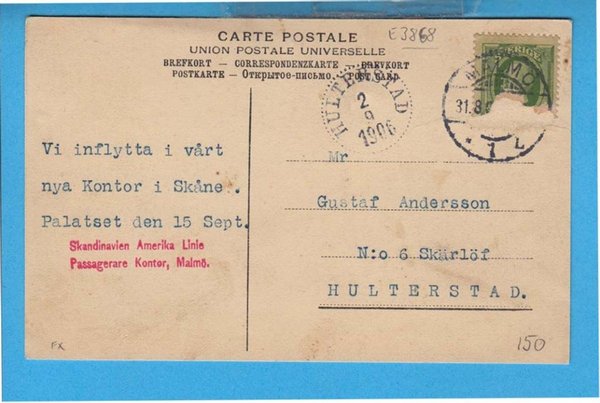 CARTE POSTALE
UNION POSTALE UNIVERSELLE
BREFKORT — CORRESPONDENZKARTE — BREVKORT
POSTKARTE — Открытое-письмо. POST CARD
E3868
SVERIGE
MALMÖ
31.8
1 L
HULTERSTAD
2
9
1906
Vi inflytta i vårt
nya Kontor i Skåne
Palatset den 15 Sept.
Skandinavien Amerika Linie
Passagerare Kontor, Malmö.
Mr
Gustaf Andersson
N:o 6 Skärlöf
HULTERSTAD.
FX
150